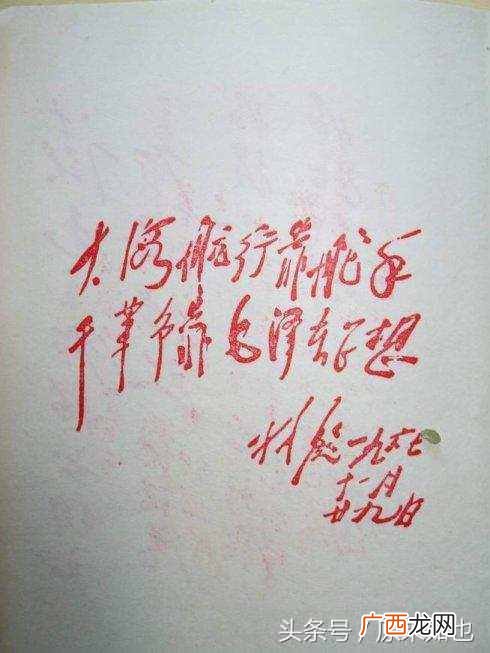 大海航行靠舵手
干革命靠毛泽东思想
林彪一九六七
十一月
廿九日
头条号 /
广西龙网